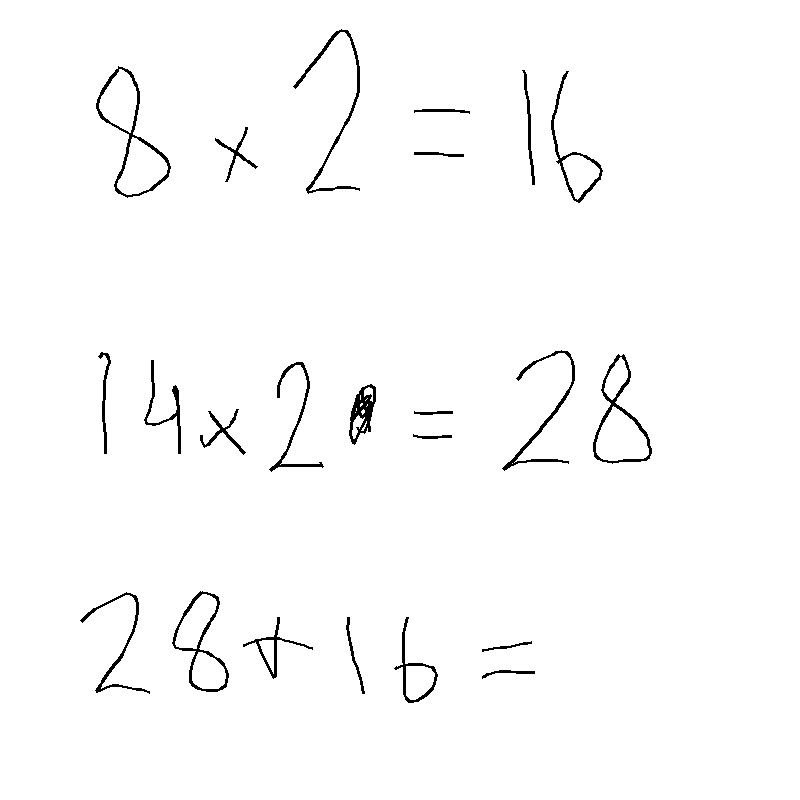 8 × 2 = 16
14 × 2 = 28
28 + 16 =